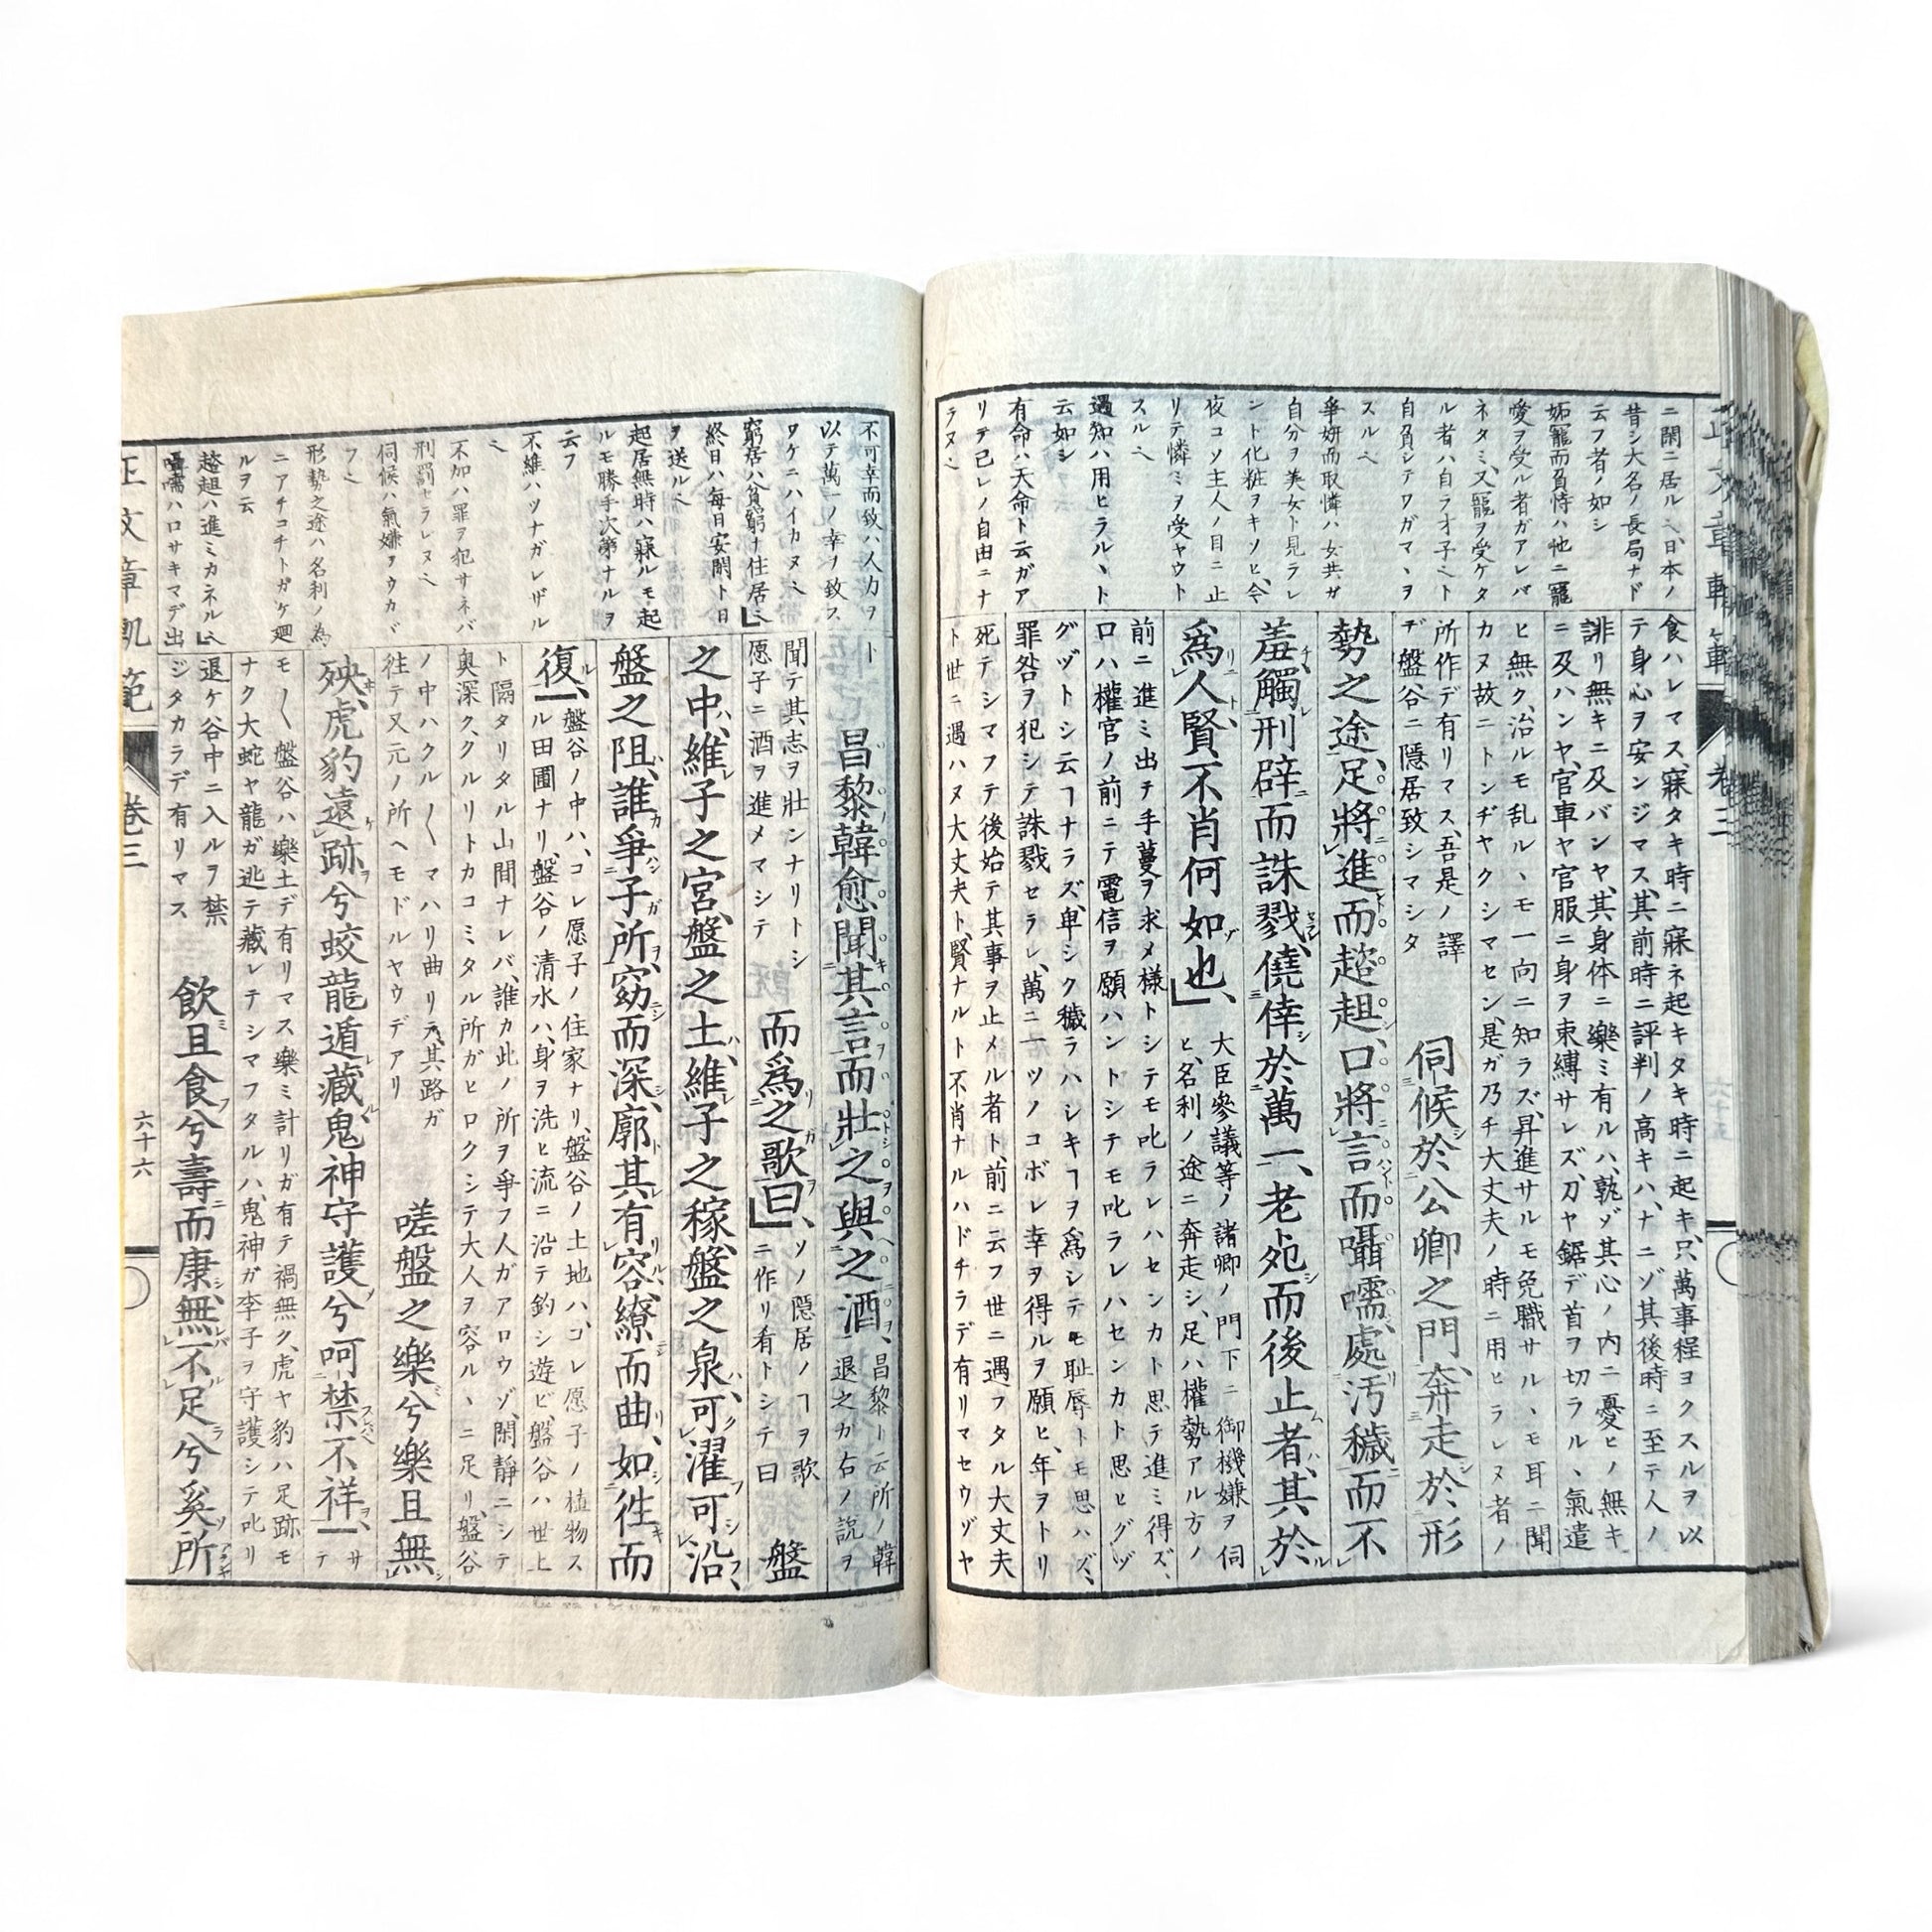 ニ閑ニ居ルヘ、日本ノ
昔シ大名ノ長局ナド
云フ者ノ如シ
妬寵而負恃ハ他ニ寵
愛ヲ受ル者ガアレバ
ネタミ、又寵ヲ受ケタ
ル者ハ自ラオ子ヘト
自負シテワガマヽヲ
スルヘ
爭妍而取憐ハ女共ガ
自分ヲ美女ト見ラレ
ント化粧ヲキソヒ、今
夜コソ主人ノ目ニ止
リテ憐ミヲ受ヤウト
スルヘ
遇知ハ用ヒラルヽト
云如シ
有命ハ天命ト云ガア
リテ己レノ自由ニナ
ラヌヘ
食ハレマス、寐タキ時ニ寐ネ起キタキ時ニ起キ、只萬事程ヨクスルヲ以
テ身心ヲ安ンジマス、其前時ニ評判ノ高キハ、ナニゾ其後時ニ至テ人ノ
誹リ無キニ及バンヤ、其身体ニ樂ミ有ルハ、孰ゾ其心ノ内ニ憂ヒノ無キ
ニ及ハンヤ、官車ヤ官服ニ身ヲ束縛サレズ、刀ヤ鋸デ首ヲ切ラルヽ氣遣
ヒ無ク、治ルモ乱ルヽモ一向ニ知ラズ、昇進サルモ免職サルヽモ耳ニ聞
カヌ故ニトンヂヤクシマセン、是ガ乃チ大丈夫ノ時ニ用ヒラレヌ者ノ
所作デ有リマス、吾是ノ譯
ヂ盤谷ニ隱居致シマシタ
伺候於公卿之門、奔走於形
勢之途、足將進而趑趄、口將言而囁嚅、處汚穢而不
羞觸刑辟而誅戮、僥倖於萬一、老卜死而後止者、其於
爲人賢不肖何如也、
大臣參議等ノ諸卿ノ門下ニ御機嫌ヲ伺
ヒ、名利ノ途ニ奔走シ、足ハ權勢アル方ノ
前ニ進ミ出テ手蔓ヲ求メ樣トシテモ叱ラレハセンカト思テ進ミ得ズ、
口ハ權官ノ前ニテ電信ヲ願ハントシテモ叱ラレハセンカト思ヒグヅ
グヅトシ云ヿナラズ、卑シク穢ラハシキヿヲ爲シテモ恥辱トモ思ハズ、
罪咎ヲ犯シテ誅戮セラレ、萬ニ一ツノコボレ幸ヲ得ルヲ願ヒ、年ヲトリ
死テシマフテ後始テ其事ヲ止メル者ト、前ニ云フ世ニ遇フタル大丈夫
ト世ニ遇ハヌ大丈夫ト、賢ナルト不肖ナルハドチラデ有リマセウゾヤ
卷三
不可幸而致ハ人力ヲ
以テ萬一ノ幸ヲ致ス
ワケニハイカヌヘ
窮居ハ貧窮ナ住居ヘ
終日ハ每日安閑ト日
ヲ送ルヘ
起居無時ハ寐ルモ起
ルモ勝手次第ナルヲ
云フ
不維ハツナガレザル
ヘ
不加ハ罪ヲ犯サネバ
刑罰セラレヌヘ
伺候ハ氣嫌ヲウカヾ
フヘ
形勢之途ハ名利ノ爲
ニアチコチトガケ廻
ルヲ云
趑趄ハ進ミカネルヘ
囁嚅ハロサキマデ出
ト
昌黎韓愈聞其言而壯之與之酒、
昌黎ト云所ノ韓
退之カ右ノ說ヲ
聞テ其志ヲ壯ンナリトシ
愿子ニ酒ヲ進メマシテ
而爲之歌曰、
ソノ隱居ノヿヲ歌
ニ作リ看トシテ曰
盤
之中、維子之宮、盤之土、維子之稼、盤之泉、可濯可沿、
盤之阻、誰爭子所、窈而深、廓其有容、繚而曲、如徃而
復、
盤谷ノ中ハ、コレ愿子ノ住家ナリ、盤谷ノ土地ハ、コレ愿子ノ植物ス
ル田圃ナリ、盤谷ノ清水ハ、身ヲ洗ヒ流ニ沿テ釣シ遊ビ、盤谷ハ世上
ト隔タリタル山間ナレバ、誰カ此ノ所ヲ爭フ人ガアロウゾ、閑靜ニシテ
奥深ク、クルリトカコミタル所ガヒロクシテ大人ヲ容ルヽニ足リ、盤谷
ノ中ハクル〱マハリ曲リテ、其路ガ
徃テ又元ノ所ヘモドルヤウデアリ
嗟盤之樂兮樂且無
殃、虎豹遠跡兮蛟龍遁藏鬼神守護兮呵禁不祥、
サ
テ
モ〱盤谷ハ樂土デ有リマス樂ミ計リガ有テ禍無ク、虎ヤ豹ハ足跡モ
ナク大蛇ヤ龍ガ逃テ藏レテシマフタルハ、鬼神ガ李子ヲ守護シテ叱リ
退ケ谷中ニ入ルヲ禁
ジタカラデ有リマス
飲且食兮壽而康、無不足兮奚所
正文章軌範
卷三
六十六